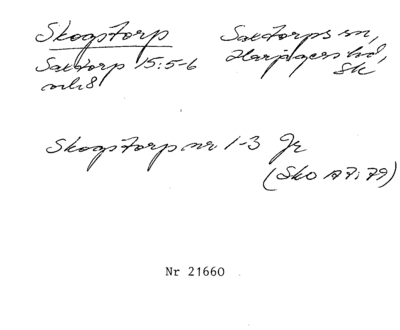 Skogstorp Saxtorps sn,
Saxtorp 15:5-6 Harjagers hd,
och 8 Sk
Skogstorp nr 1-3 Jr
(SkO A7:79)
Nr 21660